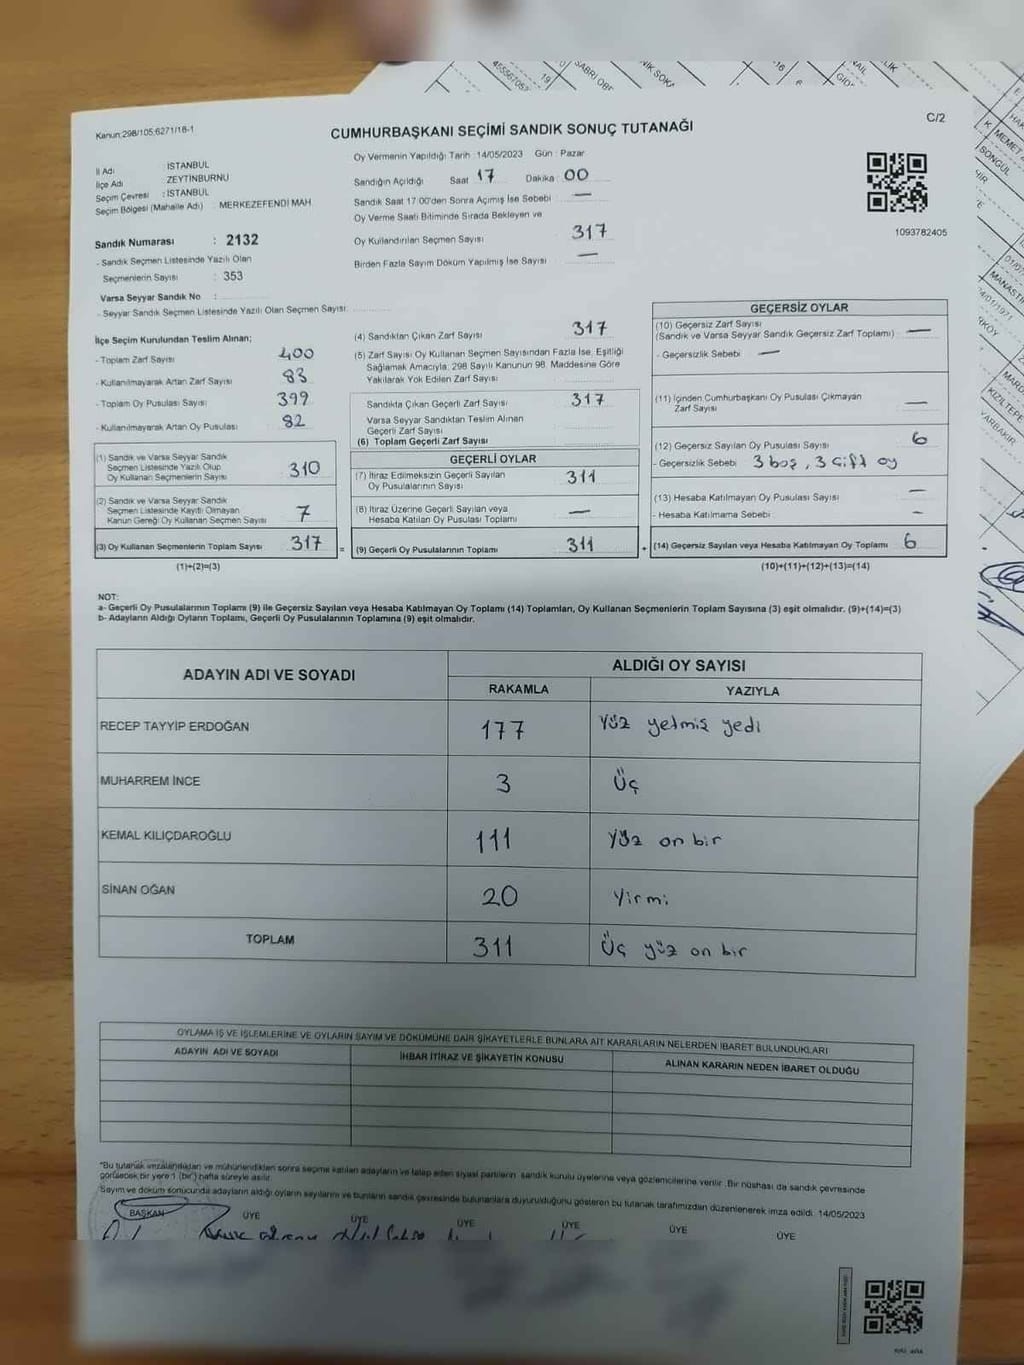 Kanun:298/105;6271/18-1
C/2
CUMHURBAŞKANI SEÇİMİ SANDIK SONUÇ TUTANAĞI
İl Adı : İSTANBUL
İlçe Adı : ZEYTİNBURNU
Seçim Çevresi : İSTANBUL
Seçim Bölgesi (Mahalle Adı) : MERKEZEFENDİ MAH.
Sandık Numarası : 2132
- Sandık Seçmen Listesinde Yazılı Olan
Seçmenlerin Sayısı : 353
Varsa Seyyar Sandık No :
- Seyyar Sandık Seçmen Listesinde Yazılı Olan Seçmen Sayısı:
Oy Vermenin Yapıldığı Tarih :14/05/2023 Gün : Pazar
Sandığın Açıldığı Saat 17 Dakika 00
Sandık Saat 17:00'den Sonra Açımış İse Sebebi —
Oy Verme Saati Bitiminde Sırada Bekleyen ve
Oy Kullandırılan Seçmen Sayısı 317
Birden Fazla Sayım Döküm Yapılmış İse Sayısı —
1093782405
İlçe Seçim Kurulundan Teslim Alınan;
- Toplam Zarf Sayısı 400
- Kullanılmayarak Artan Zarf Sayısı 83
- Toplam Oy Pusulası Sayısı 399
- Kullanılmayarak Artan Oy Pusulası 82
(1) Sandık ve Varsa Seyyar Sandık
Seçmen Listesinde Yazılı Olup
Oy Kullanan Seçmenlerin Sayısı 310
(2) Sandık ve Varsa Seyyar Sandık
Seçmen Listesinde Kayıtlı Olmayan
Kanun Gereği Oy Kullanan Seçmen Sayısı 7
(3) Oy Kullanan Seçmenlerin Toplam Sayısı 317
(1)+(2)=(3)
(4) Sandıktan Çıkan Zarf Sayısı 317
(5) Zarf Sayısı Oy Kullanan Seçmen Sayısından Fazla İse, Eşitliği
Sağlamak Amacıyla; 298 Sayılı Kanunun 98. Maddesine Göre
Yakılarak Yok Edilen Zarf Sayısı
Sandıkta Çıkan Geçerli Zarf Sayısı 317
Varsa Seyyar Sandıktan Teslim Alınan
Geçerli Zarf Sayısı
(6) Toplam Geçerli Zarf Sayısı
GEÇERLİ OYLAR
(7) İtiraz Edilmeksizin Geçerli Sayılan
Oy Pusulalarının Sayısı 311
(8) İtiraz Üzerine Geçerli Sayılan veya
Hesaba Katılan Oy Pusulası Toplamı —
= (9) Geçerli Oy Pusulalarının Toplamı 311
GEÇERSİZ OYLAR
(10) Geçersiz Zarf Sayısı
(Sandık ve Varsa Seyyar Sandık Geçersiz Zarf Toplamı) —
- Geçersizlik Sebebi —
(11) İçinden Cumhurbaşkanı Oy Pusulası Çıkmayan
Zarf Sayısı —
(12) Geçersiz Sayılan Oy Pusulası Sayısı 6
- Geçersizlik Sebebi 3 boş, 3 çift oy
(13) Hesaba Katılmayan Oy Pusulası Sayısı —
- Hesaba Katılmama Sebebi —
+ (14) Geçersiz Sayılan veya Hesaba Katılmayan Oy Toplamı 6
(10)+(11)+(12)+(13)=(14)
NOT:
a- Geçerli Oy Pusulalarının Toplamı (9) ile Geçersiz Sayılan veya Hesaba Katılmayan Oy Toplamı (14) Toplamları, Oy Kullanan Seçmenlerin Toplam Sayısına (3) eşit olmalıdır. (9)+(14)=(3)
b- Adayların Aldığı Oyların Toplamı, Geçerli Oy Pusulalarının Toplamına (9) eşit olmalıdır.
ADAYIN ADI VE SOYADI
ALDIĞI OY SAYISI
RAKAMLA YAZIYLA
RECEP TAYYİP ERDOĞAN 177 Yüz yetmiş yedi
MUHARREM İNCE 3 Üç
KEMAL KILIÇDAROĞLU 111 Yüz on bir
SİNAN OĞAN 20 Yirmi
TOPLAM 311 Üç yüz on bir
OYLAMA İŞ VE İŞLEMLERİNE VE OYLARIN SAYIM VE DÖKÜMÜNE DAİR ŞİKAYETLERLE BUNLARA AİT KARARLARIN NELERDEN İBARET BULUNDUKLARI
ADAYIN ADI VE SOYADI İHBAR İTİRAZ VE ŞİKAYETİN KONUSU ALINAN KARARIN NEDEN İBARET OLDUĞU
*Bu tutanak imzalandıktan ve mühürlendikten sonra seçime katılan adayların ve talep eden siyasi partilerin sandık kurulu üyelerine veya gözlemcilerine verilir. Bir nüshası da sandık çevresinde
görülecek bir yere 1 (bir) hafta süreyle asılır.
Sayım ve döküm sonucunda adayların aldığı oyların sayılarını ve bunların sandık çevresinde bulunanlara duyurulduğunu gösteren bu tutanak tarafımızdan düzenlenerek imza edildi. 14/05/2023
BAŞKAN ÜYE ÜYE ÜYE ÜYE ÜYE ÜYE